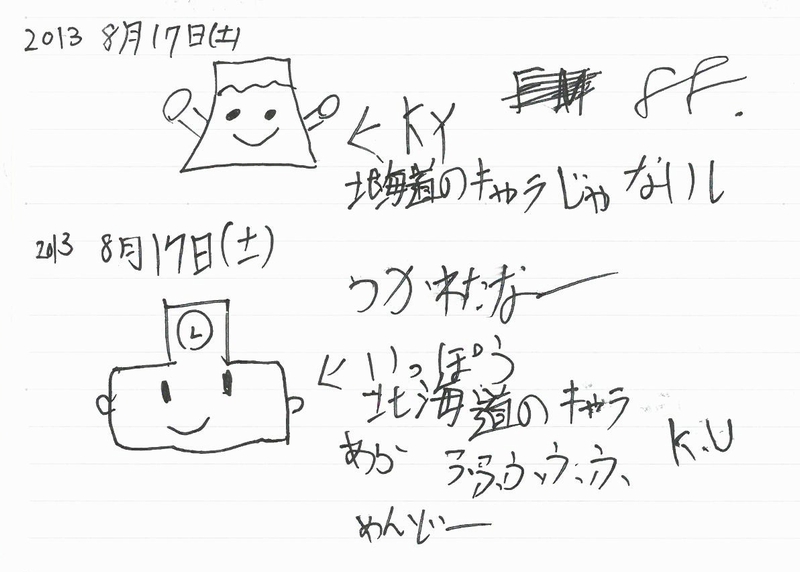 2013 8月17日(土)
←KY
北海道のキャラじゃないし
2013 8月17日(土)
つかれたなー
←いっぽう
北海道のキャラ
あら ふふふ、ふ、ふ、
K.U
めんどー